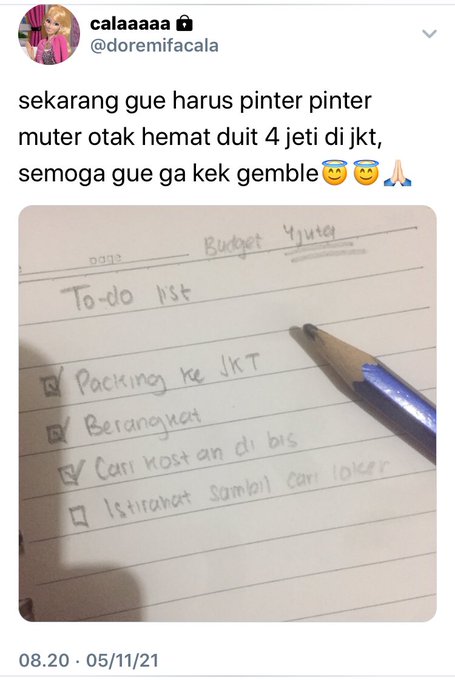 calaaaaa 🔒
@doremifacala
sekarang gue harus pinter pinter
muter otak hemat duit 4 jeti di jkt,
semoga gue ga kek gemble😇😇🙏🏻
page
Budget 4 juta
To-do list
☑ Packing ke JKT
☑ Berangkat
☑ Cari kost an di bis
☐ Istirahat sambil cari loker
08.20 · 05/11/21